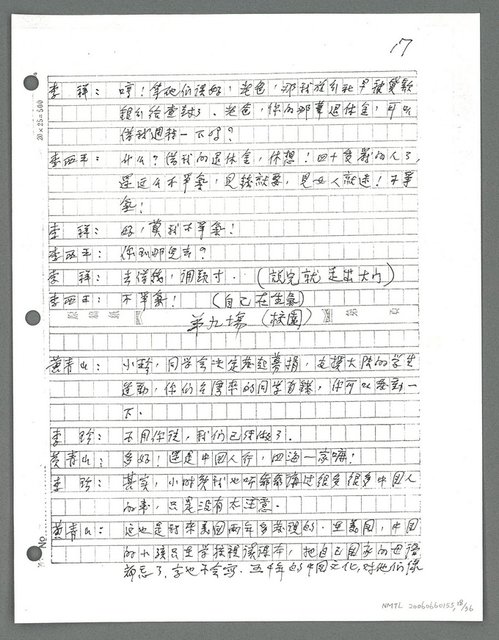 17
20×25=500
李祥：哼！算他們講好，老爸，那我放公社早被貸款
銀行給查封了。老爸，你的那筆退休金，可以
借我週轉一下嗎？
李四平：什么？借我的退休金，休想！四十幾歲的人了，
還這么不爭氣，見錢就要，見女人就追！不爭
氣！
李祥：好，算我不爭氣！
李四平：你到那兒去？
李祥：去借錢，調頭寸。（說完就走出大門）
李四平：不爭氣！（自己在生氣）
第九場（校園）
黃青山：小玲，同學會決定發起募捐，支援大陸的學生
運動，你們台灣來的同學有錢，你可以發動一
下。
李玲：不用你說，我們已經做了。
黃青山：多好！還是中國人行，四海一家嘛！
李玲：其實，小時候我也聽爺爺講過很多很多中國人
的事，只是沒有太注意。
黃青山：這也是我來美國兩年多發現的。在美國，中國
的小孩只在學校裡讀課本，把自己國家的母語
都忘了，字也不會寫。五千年的中國文化，對他們像
No.
NMTL 20060660155, 18/36